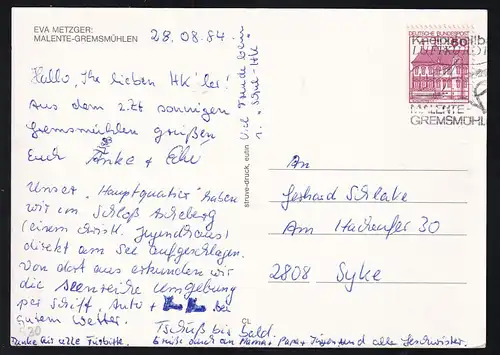 EVA METZGER:
MALENTE-GREMSMÜHLEN
28.08.84.
Hallo, Ihr lieben HK'ler!
Aus dem z.Zt sonnigen
Gremsmühlen grüßen
Euch Anke +
Unser "Hauptquartier" haben
wir im Schloß Ascheberg
(einem christl. Jugendhaus)
direkt am See aufgeschlagen.
Von dort aus erkunden wir
die seenreiche Umgebung
per Schiff, Auto + bei
gutem Wetter.
Tschüß bis bald.
Danke für alle Fürbitte. Grüße auch an Mama + Papa + und alle Geschwister.
struve-druck, eutin
CL
DEUTSCHE BUNDESPOST
60
LUFTKURORT
MALENTE-
GREMSMÜHL
An
Gerhard
Am 30
2808 Syke